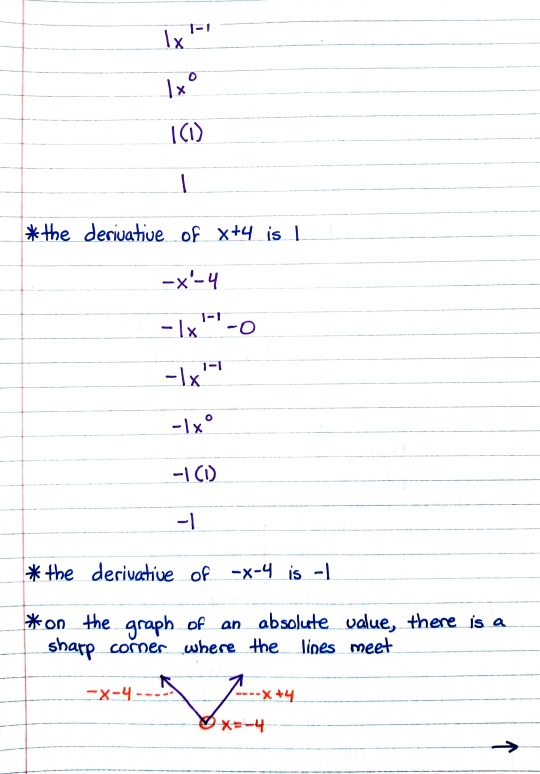 1x¹⁻¹
1x⁰
1(1)
1
*the derivative of x+4 is 1
-x¹-4
-1x¹⁻¹-0
-1x¹⁻¹
-1x⁰
-1(1)
-1
*the derivative of -x-4 is -1
*on the graph of an absolute value, there is a
sharp corner where the lines meet
-x-4----- ----x+4
x=-4
→